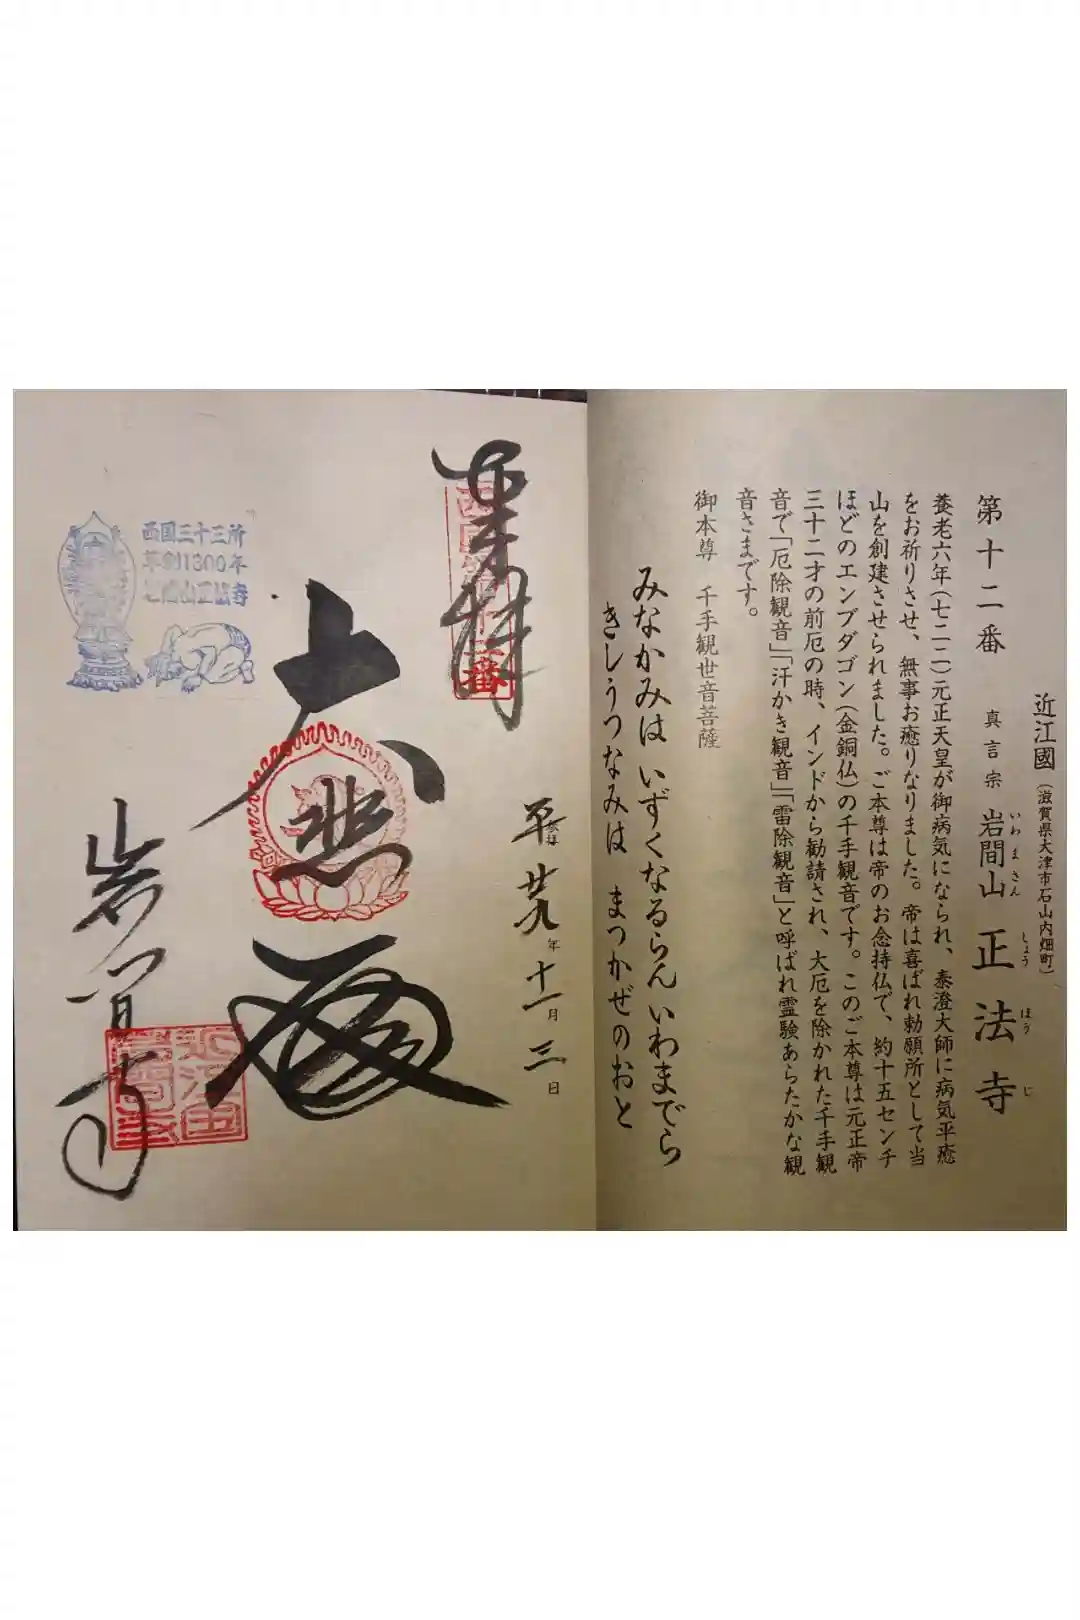 近江國(滋賀県大津市石山内畑町)
第十二番 真言宗 岩間山 正法寺
いわまさん しょうほうじ
養老六年(七二二)元正天皇が御病気になられ、泰澄大師に病気平癒
をお祈りさせ、無事お癒りなりました。帝は喜ばれ勅願所として当
山を創建させられました。ご本尊は帝のお念持仏で、約十五センチ
ほどのエンブダゴン(金銅仏)の千手観音です。このご本尊は元正帝
三十二才の前厄の時、インドから勧請され、大厄を除かれた千手観
音で「厄除観音」「汗かき観音」「雷除観音」と呼ばれ霊験あらたかな観
音さまです。
御本尊 千手観世音菩薩
みなかみは いずくなるらん いわまでら
きしうつなみは まつかぜのおと
奉拝
西国第十二番
平成廿九年十一月三日
大悲殿
岩間寺
西国三十三所
草創1300年
岩間山正法寺